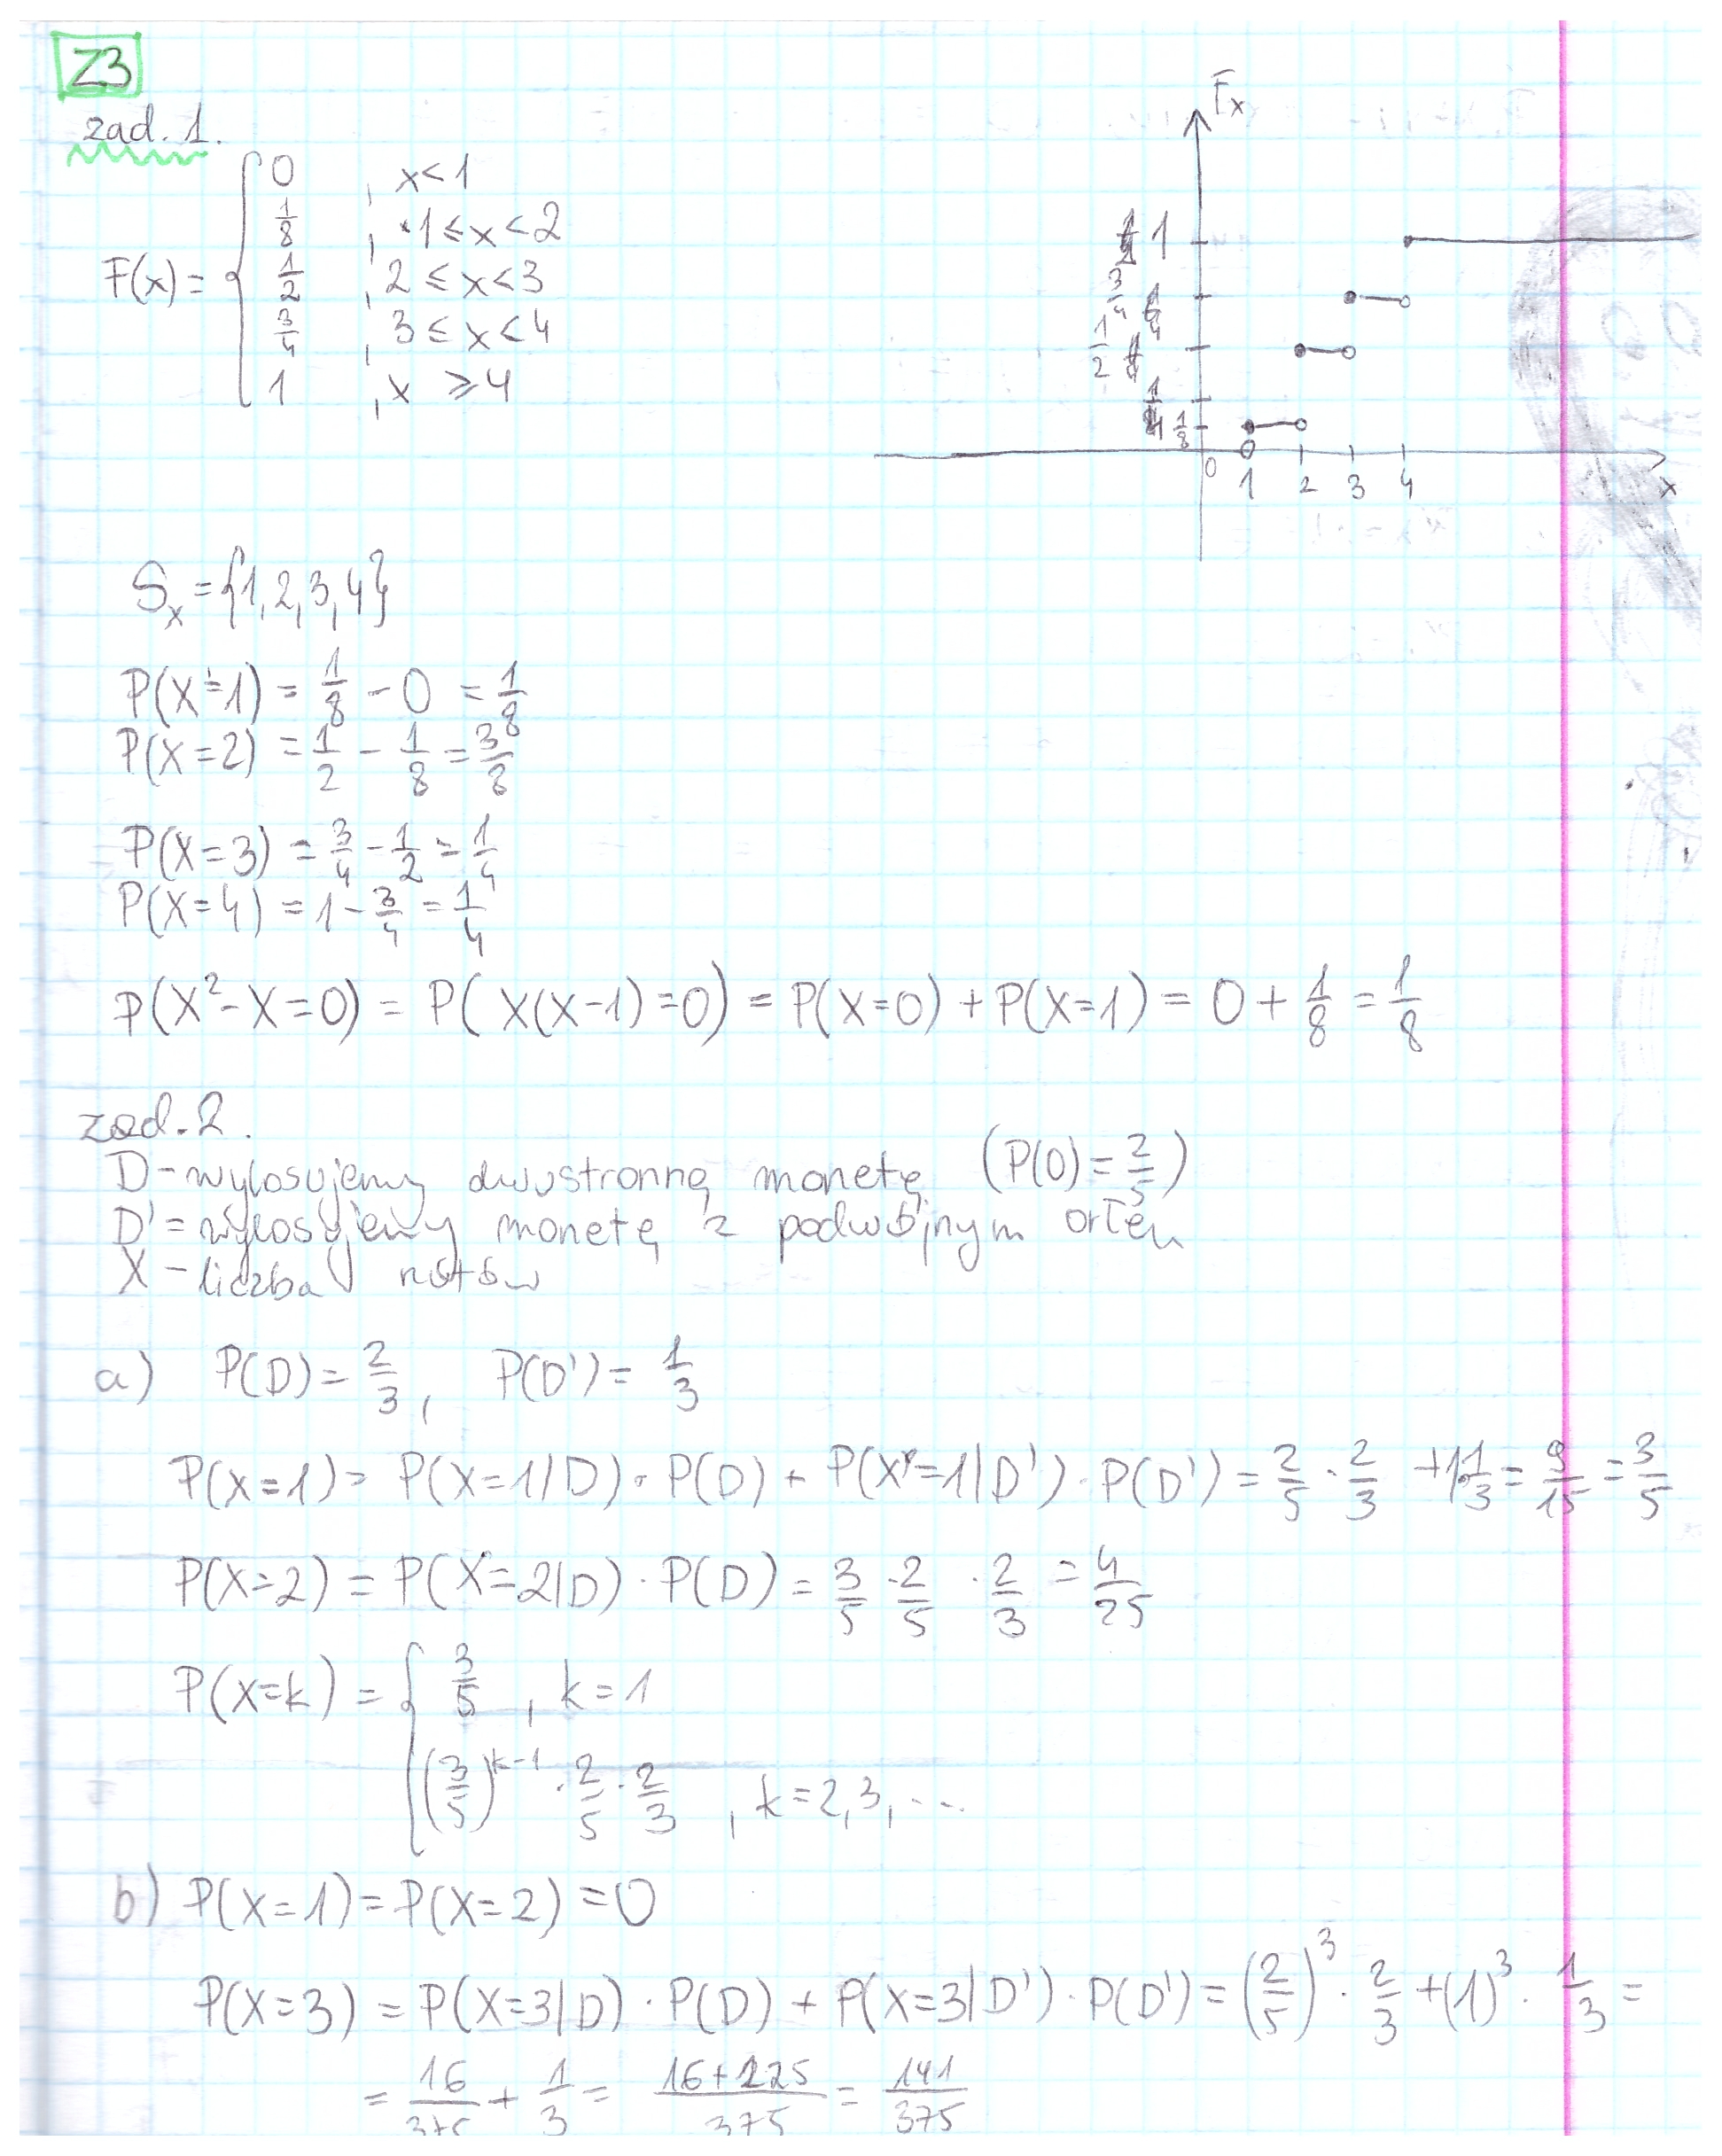 Z3
zad. 1.
F(x) = { 0 , x<1
1/8 , 1 ≤ x < 2
1/2 , 2 ≤ x < 3
3/4 , 3 ≤ x < 4
1 , x ≥ 4
Fx
1
3/4
1/2
1/4
1/8
0 1 2 3 4 x
Sx = {1,2,3,4}
P(X=1) = 1/8 - 0 = 1/8
P(X=2) = 1/2 - 1/8 = 3/8
P(X=3) = 3/4 - 1/2 = 1/4
P(X=4) = 1 - 3/4 = 1/4
P(X²-X=0) = P(X(X-1)=0) = P(X=0) + P(X=1) = 0 + 1/8 = 1/8
zad. 2.
D - wylosujemy dwustronną monetę (P(O) = 2/5)
D' = wylosujemy monetę z podwójnym orłem
X - liczba rzutów
a) P(D) = 2/3, P(D') = 1/3
P(X=1) = P(X=1|D) · P(D) + P(X=1|D') · P(D') = 2/5 · 2/3 + 1·1/3 = 9/15 = 3/5
P(X=2) = P(X=2|D) · P(D) = 3/5 · 2/5 · 2/3 = 4/25
P(X=k) = { 3/5 , k=1
(3/5)^(k-1) · 2/5 · 2/3 , k=2,3,...
b) P(X=1) = P(X=2) = 0
P(X=3) = P(X=3|D) · P(D) + P(X=3|D') · P(D') = (2/5)³ · 2/3 + (1)³ · 1/3 =
= 16/375 + 1/3 = 16+125/375 = 141/375